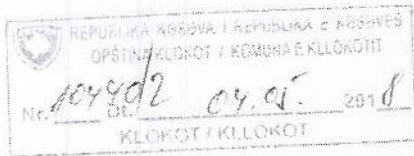 REPUBLIKA KOSOVA / REPUBLIKA E KOSOVËS
OPŠTINA KLOKOT / KOMUNA E KLLOKOTIT
Nr. 04.05. 2018
KLOKOT / KLLOKOT